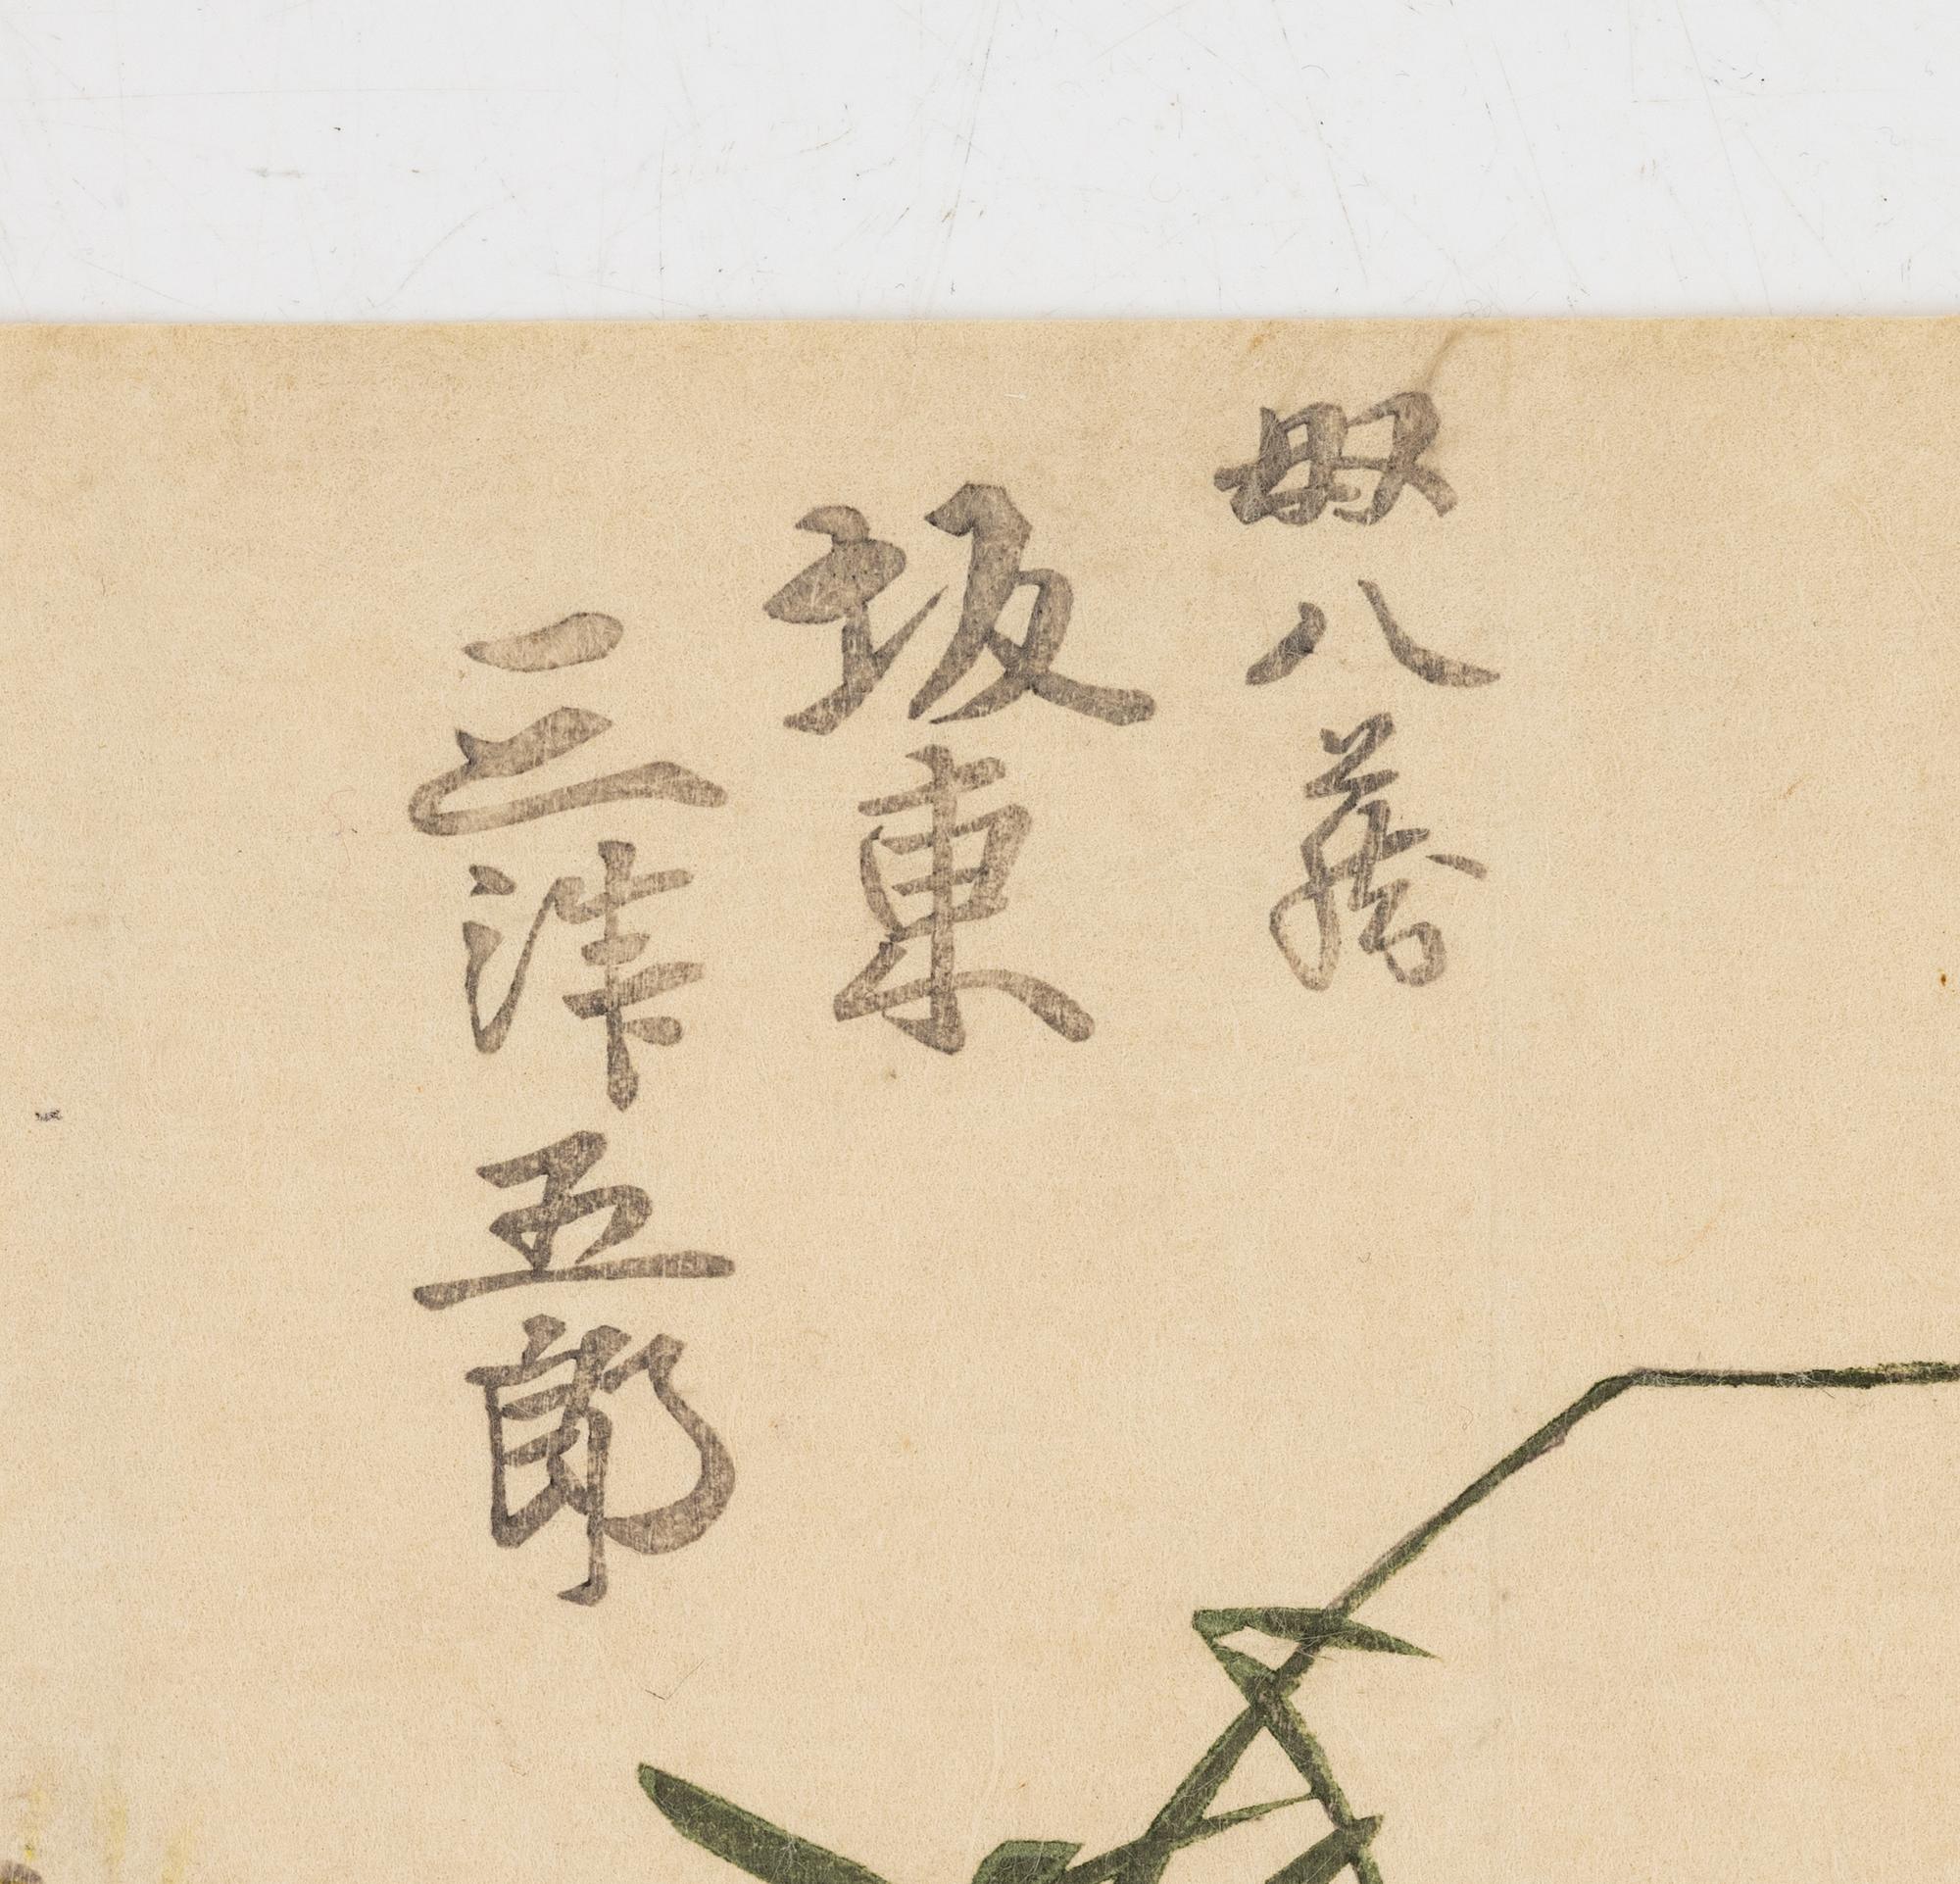 奴八蔵
坂東
三津五郎